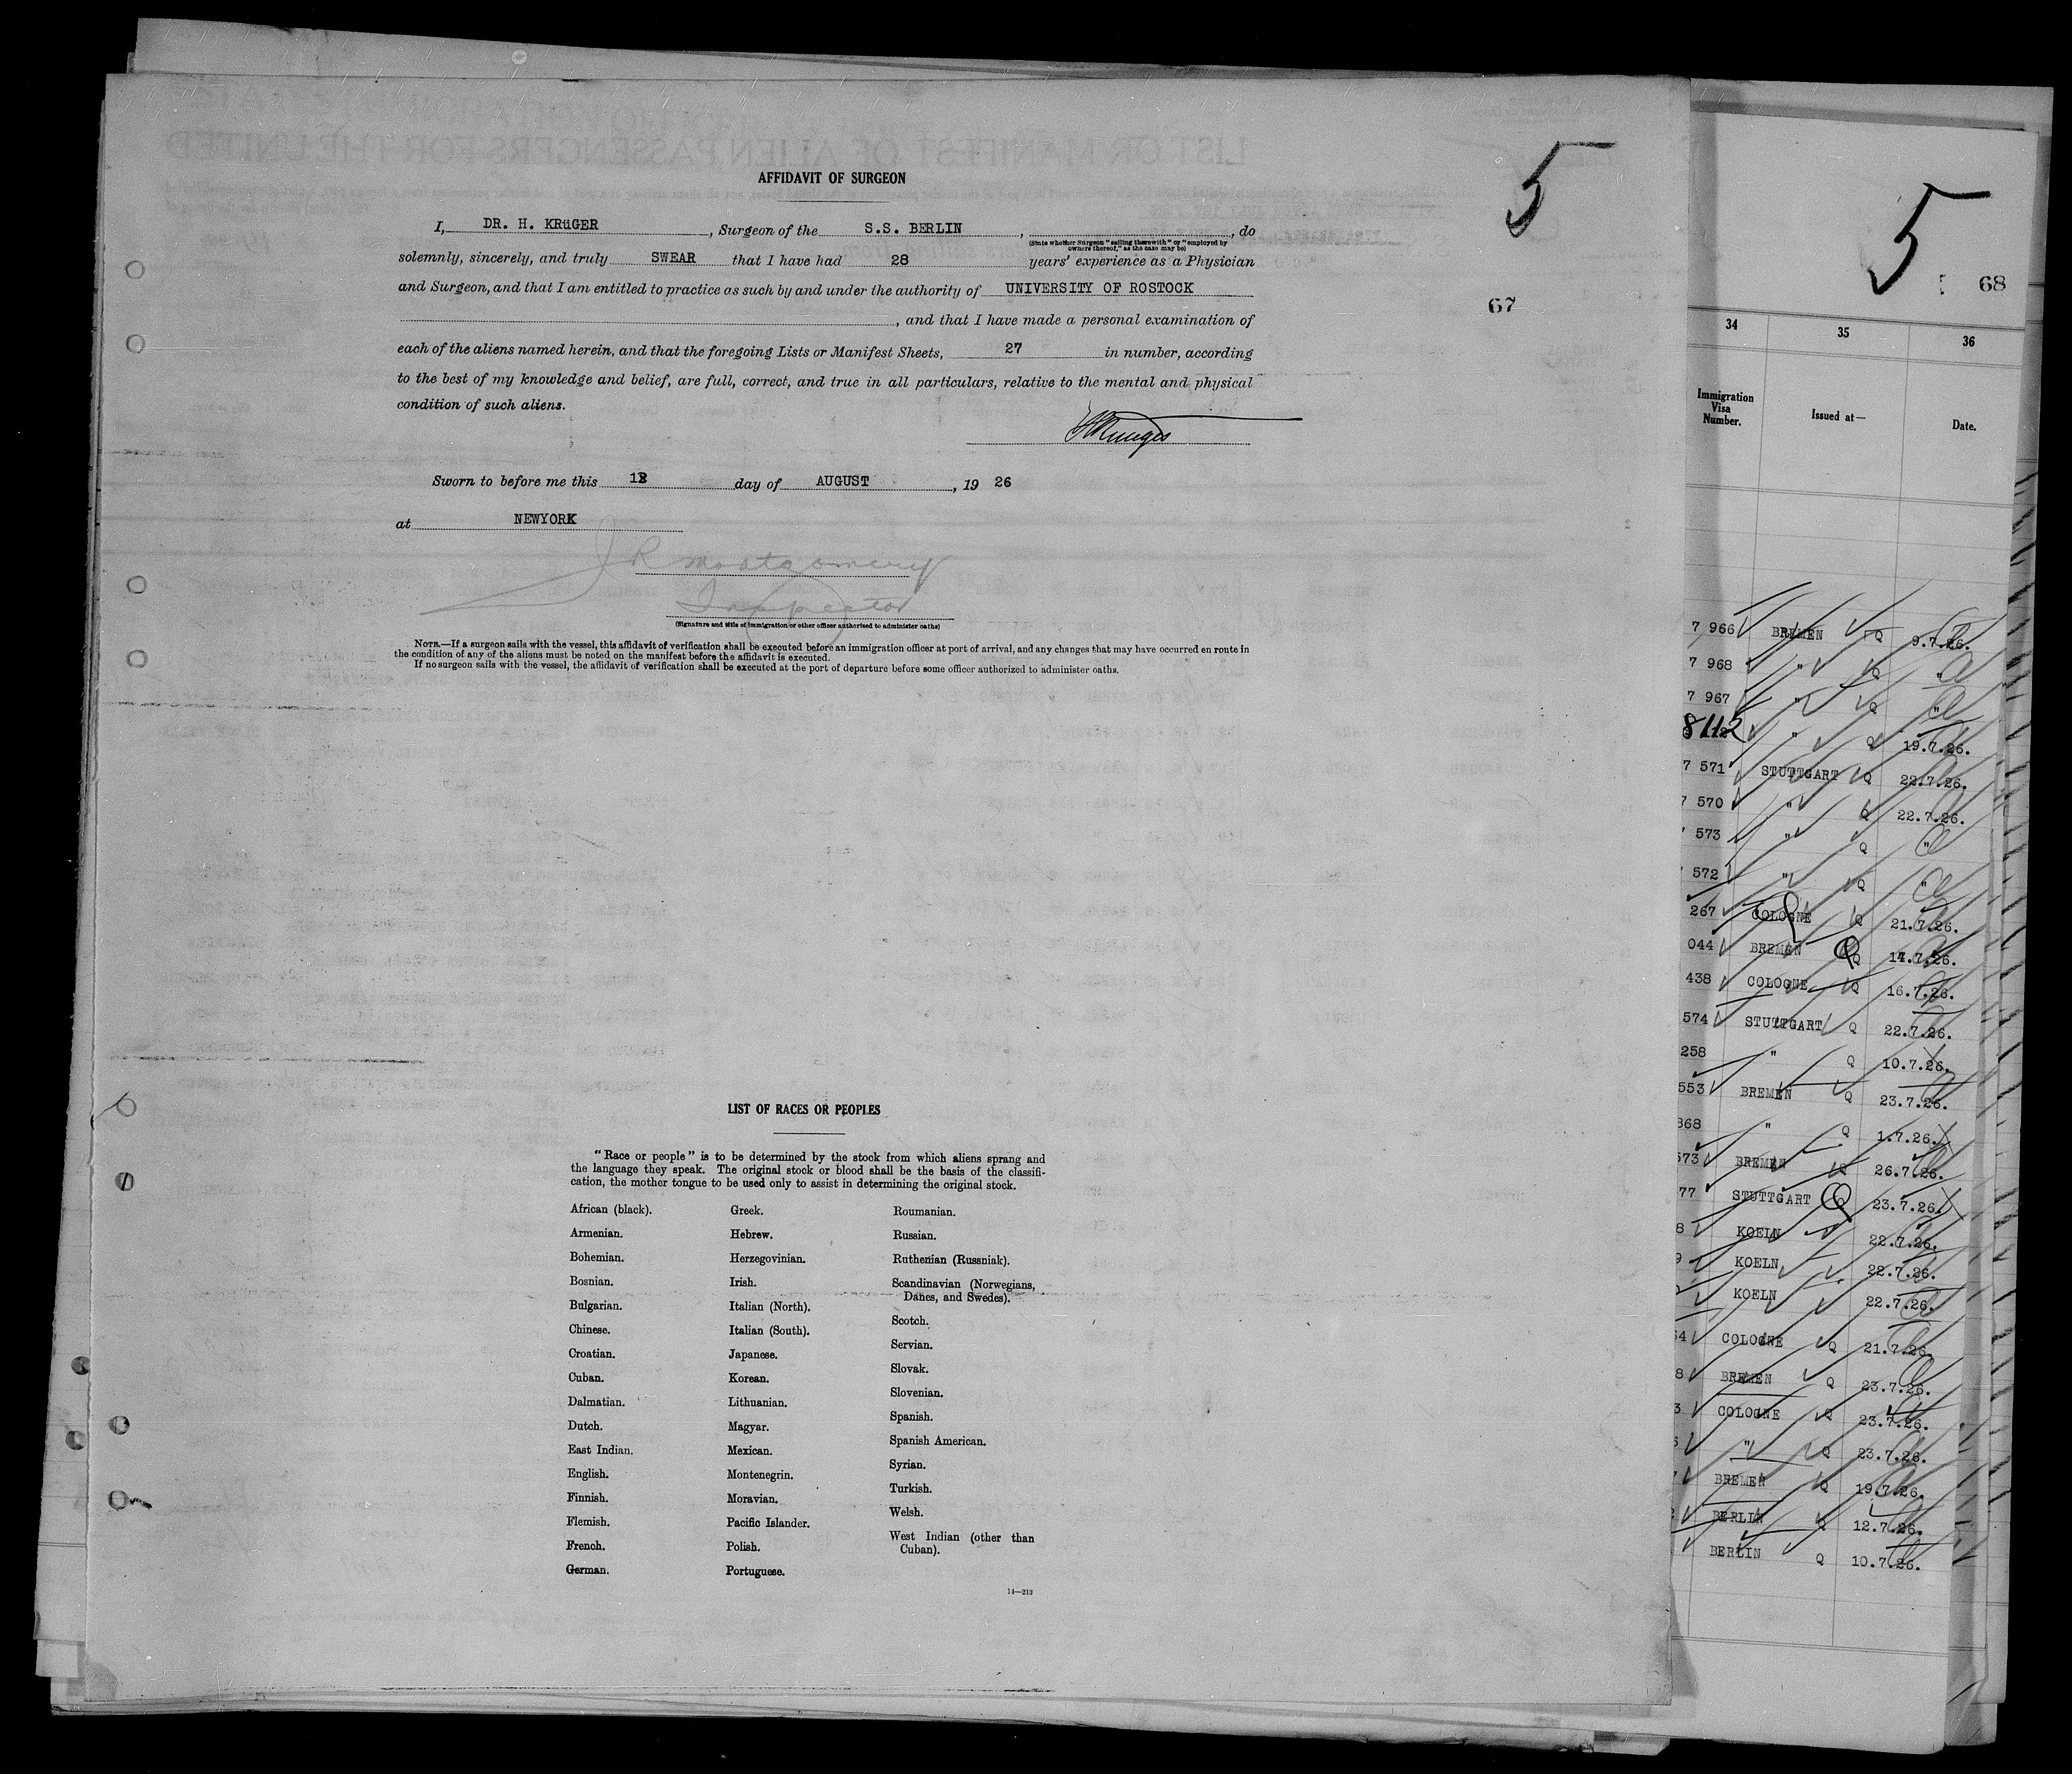 5
67
AFFIDAVIT OF SURGEON
I, DR. H. KRüGER, Surgeon of the S.S. BERLIN, , do
(State whether Surgeon "sailing therewith" or "employed by
owners thereof," as the case may be)
solemnly, sincerely, and truly SWEAR that I have had 28 years' experience as a Physician
and Surgeon, and that I am entitled to practice as such by and under the authority of UNIVERSITY OF ROSTOCK
, and that I have made a personal examination of
each of the aliens named herein, and that the foregoing Lists or Manifest Sheets, 27 in number, according
to the best of my knowledge and belief, are full, correct, and true in all particulars, relative to the mental and physical
condition of such aliens.
Sworn to before me this day of AUGUST, 19 26
at NEWYORK
J R Montgomery
Inspector
(Signature and title of immigration or other officer authorized to administer oaths)
NOTE.—If a surgeon sails with the vessel, this affidavit of verification shall be executed before an immigration officer at port of arrival, and any changes that may have occurred en route in
the condition of any of the aliens must be noted on the manifest before the affidavit is executed.
If no surgeon sails with the vessel, the affidavit of verification shall be executed at the port of departure before some officer authorized to administer oaths.
LIST OF RACES OR PEOPLES
"Race or people" is to be determined by the stock from which aliens sprang and
the language they speak. The original stock or blood shall be the basis of the classifi-
cation, the mother tongue to be used only to assist in determining the original stock.
African (black).
Armenian.
Bohemian.
Bosnian.
Bulgarian.
Chinese.
Croatian.
Cuban.
Dalmatian.
Dutch.
East Indian.
English.
Finnish.
Flemish.
French.
German.
Greek.
Hebrew.
Herzegovinian.
Irish.
Italian (North).
Italian (South).
Japanese.
Korean.
Lithuanian.
Magyar.
Mexican.
Montenegrin.
Moravian.
Pacific Islander.
Polish.
Portuguese.
Roumanian.
Russian.
Ruthenian (Russniak).
Scandinavian (Norwegians,
Danes, and Swedes).
Scotch.
Servian.
Slovak.
Slovenian.
Spanish.
Spanish American.
Syrian.
Turkish.
Welsh.
West Indian (other than
Cuban).
14—213
5
68
34 35 36
Immigration
Visa
Number.
Issued at—
Date.
7 966 BREMEN Q 9.7.26.
7 968 " Q "
7 967 " Q "
8112 " Q 19.7.26.
7 571 STUTTGART Q 22.7.26.
7 570 " Q 22.7.26.
573 " Q "
572 " Q "
267 COLOGNE Q 21.7.26.
044 BREMEN Q 14.7.26.
438 COLOGNE Q 16.7.26.
574 STUTTGART Q 22.7.26.
258 " Q 10.7.26.
553 BREMEN Q 23.7.26.
868 " Q 1.7.26.
573 BREMEN Q 26.7.26.
77 STUTTGART Q 23.7.26.
8 KOELN 22.7.26.
9 KOELN 22.7.26.
KOELN 22.7.26.
64 COLOGNE Q 21.7.26.
8 BREMEN Q 23.7.26.
3 COLOGNE Q 23.7.26.
" Q 23.7.26.
BREMEN Q 19.7.26.
BERLIN Q 12.7.26.
BERLIN Q 10.7.26.